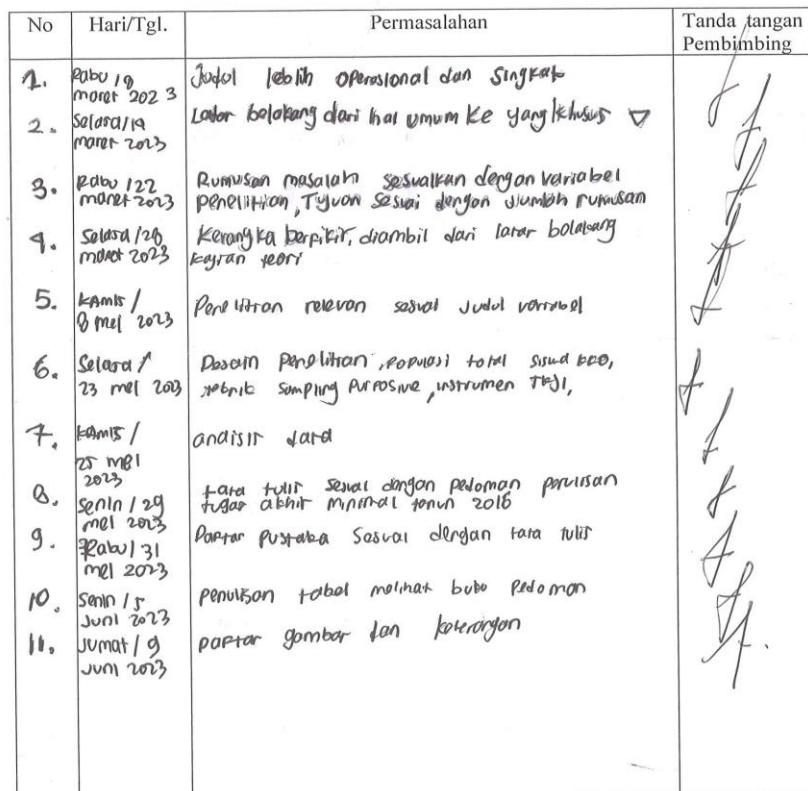 No Hari/Tgl. Permasalahan Tanda tangan Pembimbing
1. Rabu / 8 maret 2023 Judul lebih operasional dan singkat
2. Selasa / 14 maret 2023 Latar belakang dari hal umum ke yang khusus ▽
3. Rabu / 22 maret 2023 Rumusan masalah sesuaikan dengan variabel
penelitian, Tujuan sesuai dengan jumlah rumusan
4. Selasa / 28 maret 2023 Kerangka berpikir, diambil dari latar belakang
kajian teori
5. Kamis / 8 mei 2023 Penelitian relevan sesuai judul variabel
6. Selasa / 23 mei 2023 Desain Penelitian, populasi total siswa
teknik sampling Purposive, instrumen TKJI,
7. Kamis / 25 mei 2023 analisis data
8. Senin / 29 mei 2023 tata tulis sesuai dengan pedoman penulisan
tugas akhir minimal tahun 2016
9. Rabu / 31 mei 2023 Daftar Pustaka Sesuai dengan tata tulis
10. Senin / 5 Juni 2023 penulisan tabel melihat buku Pedoman
11. Jumat / 9 Juni 2023 Daftar gambar dan keterangan